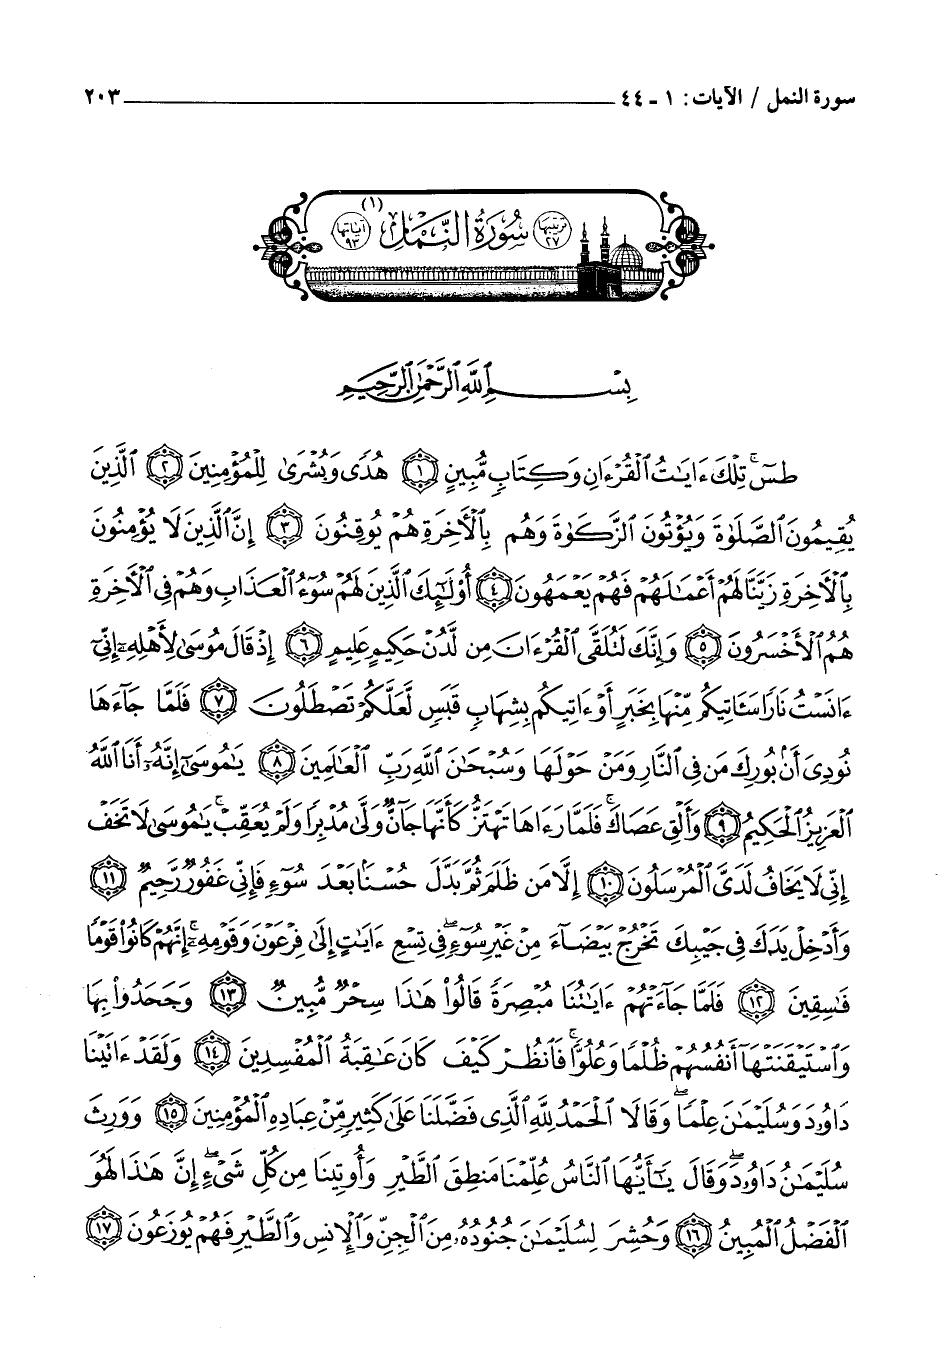 سورة النمل / الآيات: ١ - ٤٤ ٢٠٣
ترتيبها ٢٧ سُورَةُ النَّمْلِ (١) آياتها ٩٣
بِسْمِ ٱللَّهِ ٱلرَّحْمَٰنِ ٱلرَّحِيمِ
طسٓ ۚ تِلْكَ ءَايَٰتُ ٱلْقُرْءَانِ وَكِتَابٍ مُّبِينٍ ١ هُدًى وَبُشْرَىٰ لِلْمُؤْمِنِينَ ٢ ٱلَّذِينَ
يُقِيمُونَ ٱلصَّلَوٰةَ وَيُؤْتُونَ ٱلزَّكَوٰةَ وَهُم بِٱلْأَخِرَةِ هُمْ يُوقِنُونَ ٣ إِنَّ ٱلَّذِينَ لَا يُؤْمِنُونَ
بِٱلْأَخِرَةِ زَيَّنَّا لَهُمْ أَعْمَٰلَهُمْ فَهُمْ يَعْمَهُونَ ٤ أُوْلَٰٓئِكَ ٱلَّذِينَ لَهُمْ سُوٓءُ ٱلْعَذَابِ وَهُمْ فِى ٱلْأَخِرَةِ
هُمُ ٱلْأَخْسَرُونَ ٥ وَإِنَّكَ لَتُلَقَّى ٱلْقُرْءَانَ مِن لَّدُنْ حَكِيمٍ عَلِيمٍ ٦ إِذْ قَالَ مُوسَىٰ لِأَهْلِهِۦٓ إِنِّىٓ
ءَانَسْتُ نَارًا سَـَٔاتِيكُم مِّنْهَا بِخَبَرٍ أَوْ ءَاتِيكُم بِشِهَابٍ قَبَسٍ لَّعَلَّكُمْ تَصْطَلُونَ ٧ فَلَمَّا جَآءَهَا
نُودِىَ أَنۢ بُورِكَ مَن فِى ٱلنَّارِ وَمَنْ حَوْلَهَا وَسُبْحَٰنَ ٱللَّهِ رَبِّ ٱلْعَٰلَمِينَ ٨ يَٰمُوسَىٰٓ إِنَّهُۥٓ أَنَا ٱللَّهُ
ٱلْعَزِيزُ ٱلْحَكِيمُ ٩ وَأَلْقِ عَصَاكَ ۚ فَلَمَّا رَءَاهَا تَهْتَزُّ كَأَنَّهَا جَآنٌّ وَلَّىٰ مُدْبِرًا وَلَمْ يُعَقِّبْ ۚ يَٰمُوسَىٰ لَا تَخَفْ
إِنِّى لَا يَخَافُ لَدَىَّ ٱلْمُرْسَلُونَ ١٠ إِلَّا مَن ظَلَمَ ثُمَّ بَدَّلَ حُسْنًۢا بَعْدَ سُوٓءٍ فَإِنِّى غَفُورٌ رَّحِيمٌ ١١
وَأَدْخِلْ يَدَكَ فِى جَيْبِكَ تَخْرُجْ بَيْضَآءَ مِنْ غَيْرِ سُوٓءٍ ۖ فِى تِسْعِ ءَايَٰتٍ إِلَىٰ فِرْعَوْنَ وَقَوْمِهِۦٓ ۚ إِنَّهُمْ كَانُوا۟ قَوْمًا
فَٰسِقِينَ ١٢ فَلَمَّا جَآءَتْهُمْ ءَايَٰتُنَا مُبْصِرَةً قَالُوا۟ هَٰذَا سِحْرٌ مُّبِينٌ ١٣ وَجَحَدُوا۟ بِهَا
وَٱسْتَيْقَنَتْهَآ أَنفُسُهُمْ ظُلْمًا وَعُلُوًّا ۚ فَٱنظُرْ كَيْفَ كَانَ عَٰقِبَةُ ٱلْمُفْسِدِينَ ١٤ وَلَقَدْ ءَاتَيْنَا
دَاوُۥدَ وَسُلَيْمَٰنَ عِلْمًا ۖ وَقَالَا ٱلْحَمْدُ لِلَّهِ ٱلَّذِى فَضَّلَنَا عَلَىٰ كَثِيرٍ مِّنْ عِبَادِهِ ٱلْمُؤْمِنِينَ ١٥ وَوَرِثَ
سُلَيْمَٰنُ دَاوُۥدَ ۖ وَقَالَ يَٰٓأَيُّهَا ٱلنَّاسُ عُلِّمْنَا مَنطِقَ ٱلطَّيْرِ وَأُوتِينَا مِن كُلِّ شَىْءٍ ۖ إِنَّ هَٰذَا لَهُوَ
ٱلْفَضْلُ ٱلْمُبِينُ ١٦ وَحُشِرَ لِسُلَيْمَٰنَ جُنُودُهُۥ مِنَ ٱلْجِنِّ وَٱلْإِنسِ وَٱلطَّيْرِ فَهُمْ يُوزَعُونَ ١٧